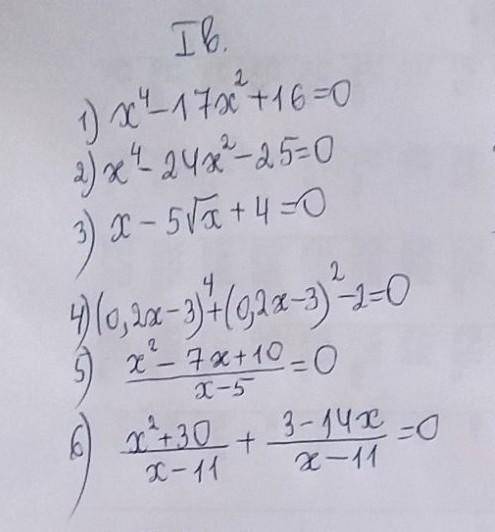 I в.
1) x⁴-17x²+16=0
2) x⁴-24x²-25=0
3) x-5√x+4=0
4) (0,2x-3)⁴+(0,2x-3)²-2=0
5) (x²-7x+10)/(x-5)=0
6) (x²+30)/(x-11)+(3-14x)/(x-11)=0